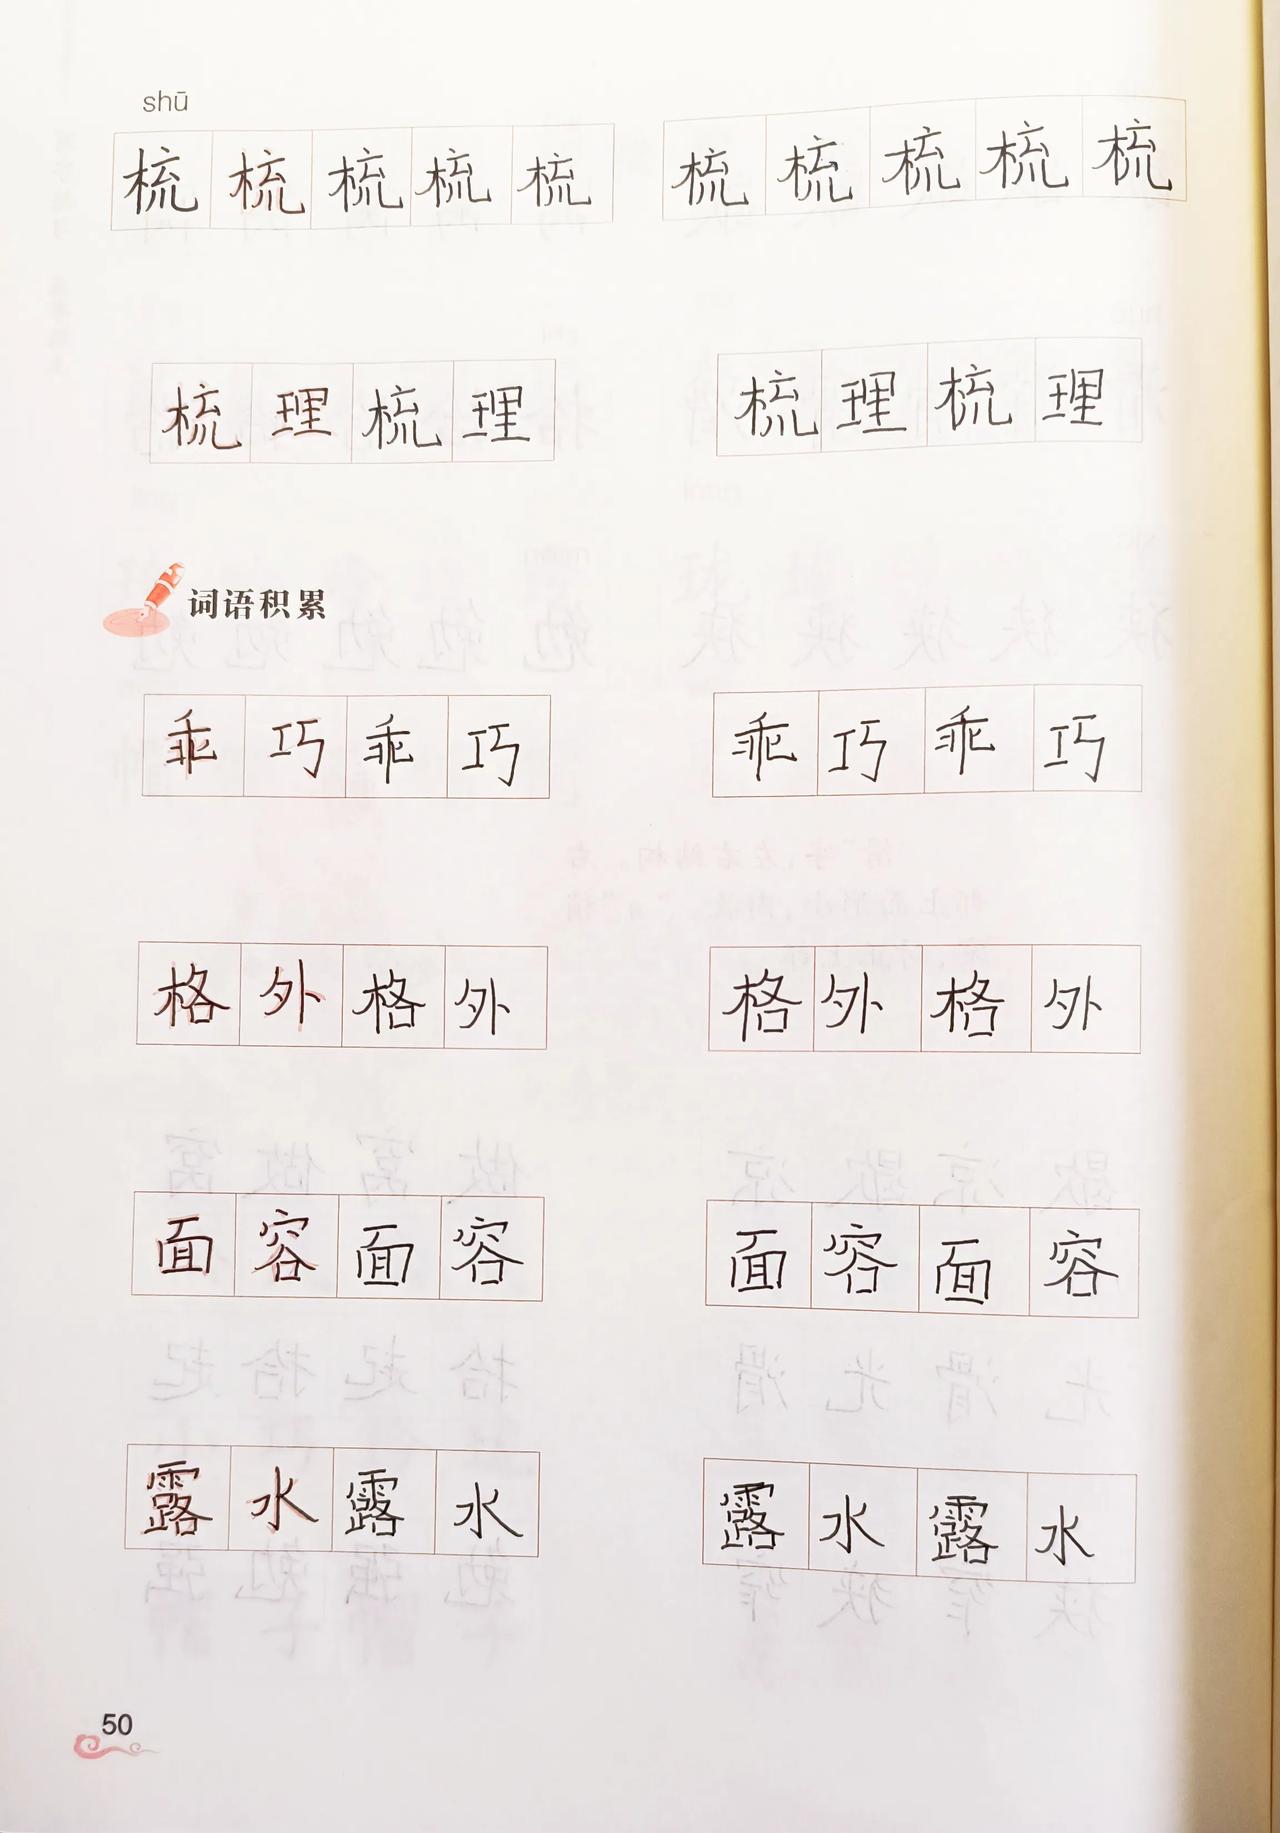 shū
梳梳梳梳梳 梳梳梳梳梳
梳理梳理 梳理梳理
词语积累
乖巧乖巧 乖巧乖巧
格外格外 格外格外
面容面容 面容面容
露水露水 露水露水
50